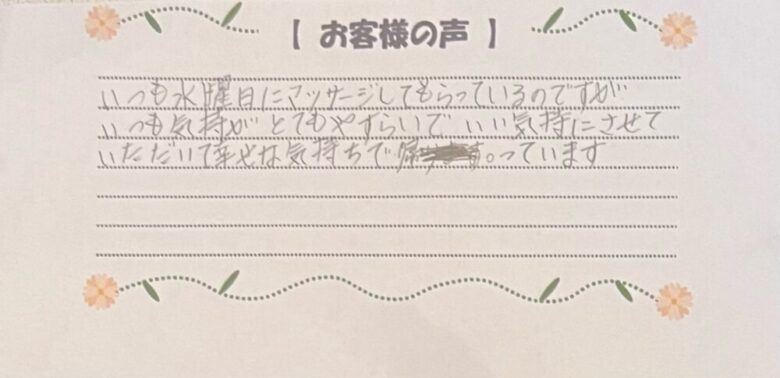 【 お客様の声 】
いつも水曜日にマッサージしてもらっているのですが
いつも気持がとてもやすらいでいい気持にさせて
いただいて幸せな気持ちで帰っています